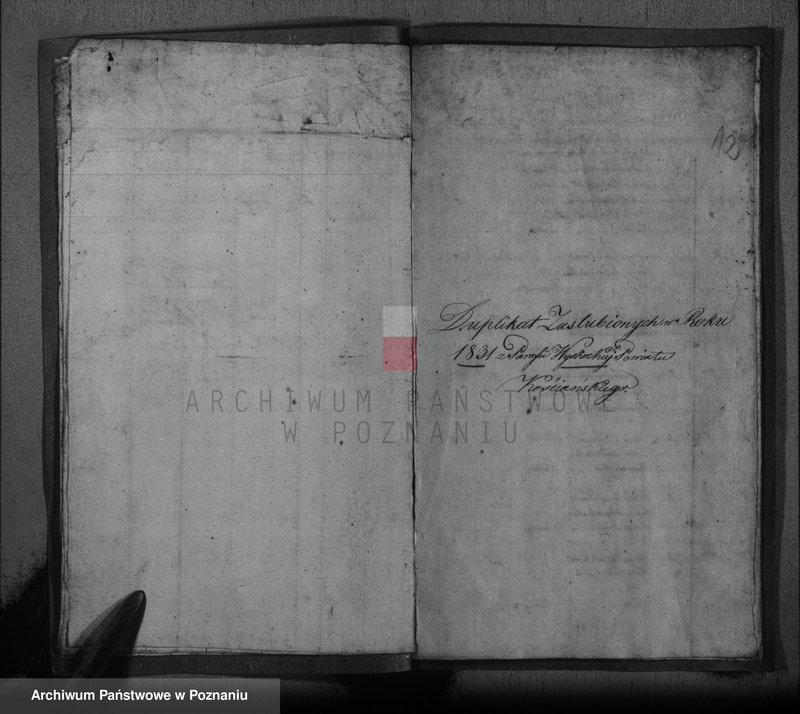 125
Duplikat Zaslubionych w Roku
1831 z Parafii Wyskockiej Powiatu
Kościańskiego.
ARCHIWUM PAŃSTWOWE
W POZNANIU
Archiwum Państwowe w Poznaniu